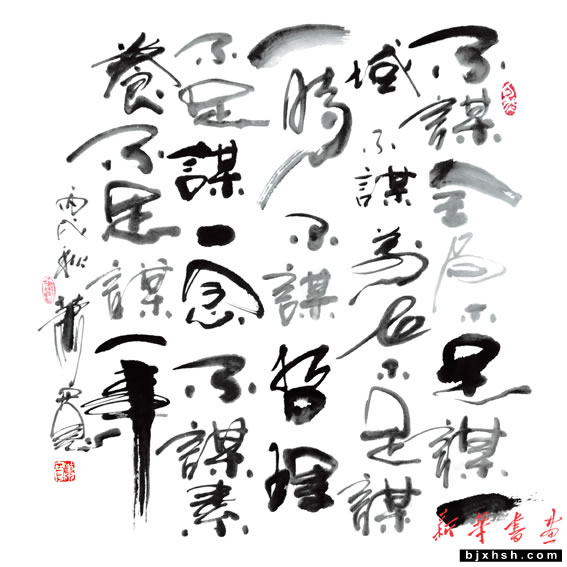 不謀全局不足謀一
域不謀萬世不足謀
一時不謀哲理
不足謀一念不謀素
養不足謀一事
丙戌秋
新華書畫
bjxhsh.com